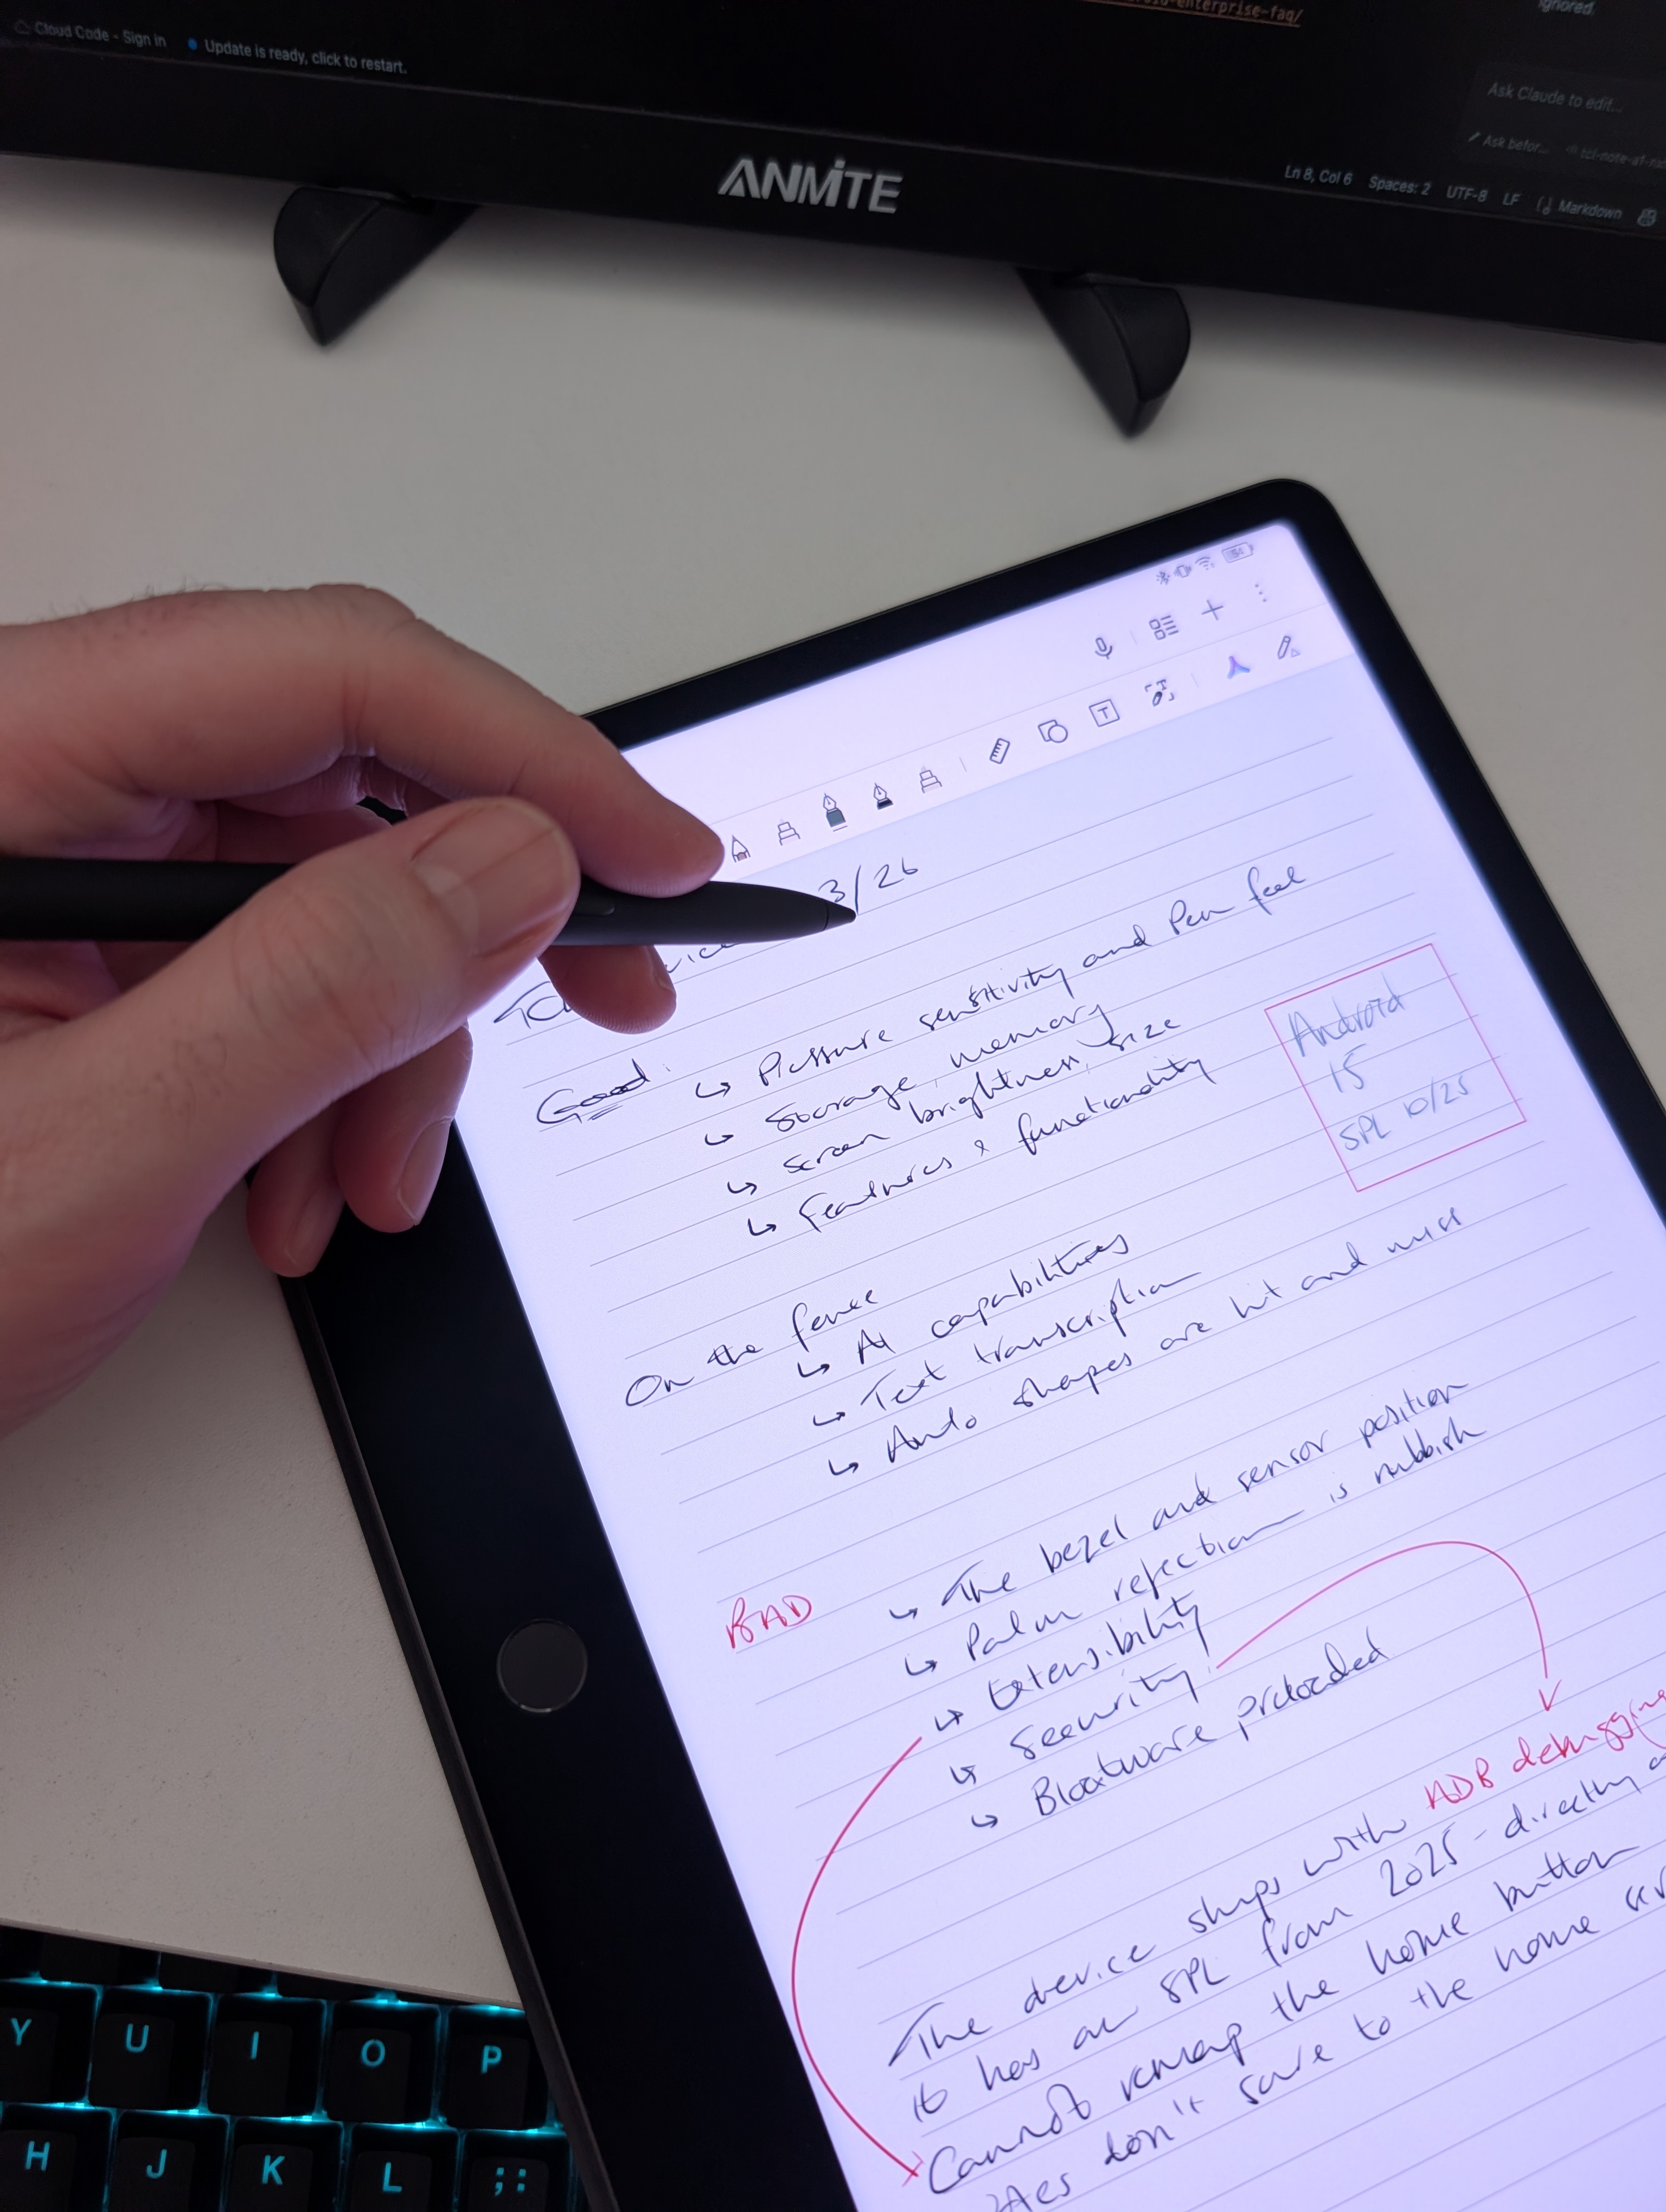 enterprise-faq/
ignored.
Cloud Code - Sign in
Update is ready, click to restart.
Ask Claude to edit...
Ask befor...
Ln 8, Col 6 Spaces: 2 UTF-8 LF Markdown
ANMITE
54
T
3/26
Good:
↳ Pressure sensitivity and Pen feel
↳ Storage, memory
↳ Screen brightness, size
↳ Features & functionality
Android
15
SPL 10/25
On the fence
↳ AI capabilities
↳ Text transcription
↳ Auto shapes are hit and miss
BAD
↳ The bezel and sensor position
↳ Palm rejection is rubbish
↳ Extensibility
↳ Security
↳ Bloatware preloaded
The device ships with ADB debugging
It has an SPL from 2025 - directly
Cannot remap the home button
don't save to the home
Y U I O P
H J K L ; :